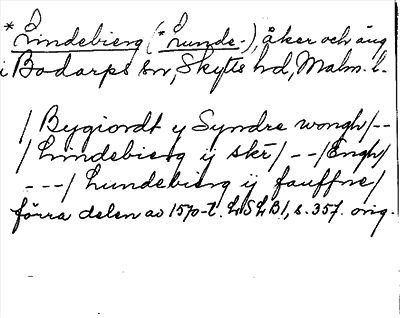 *Lindebierg (*Lunde-), åker och äng
i Bodarps sn, Skytts hd, Malm. l.
/ Bygiordt y Syndre wongh/--
/ Lindebierg ij skr̄/ --/Engh/
---/ Lundebierg ij fauffne/
förra delen av 1570-t. LSLB1, s. 357. orig.